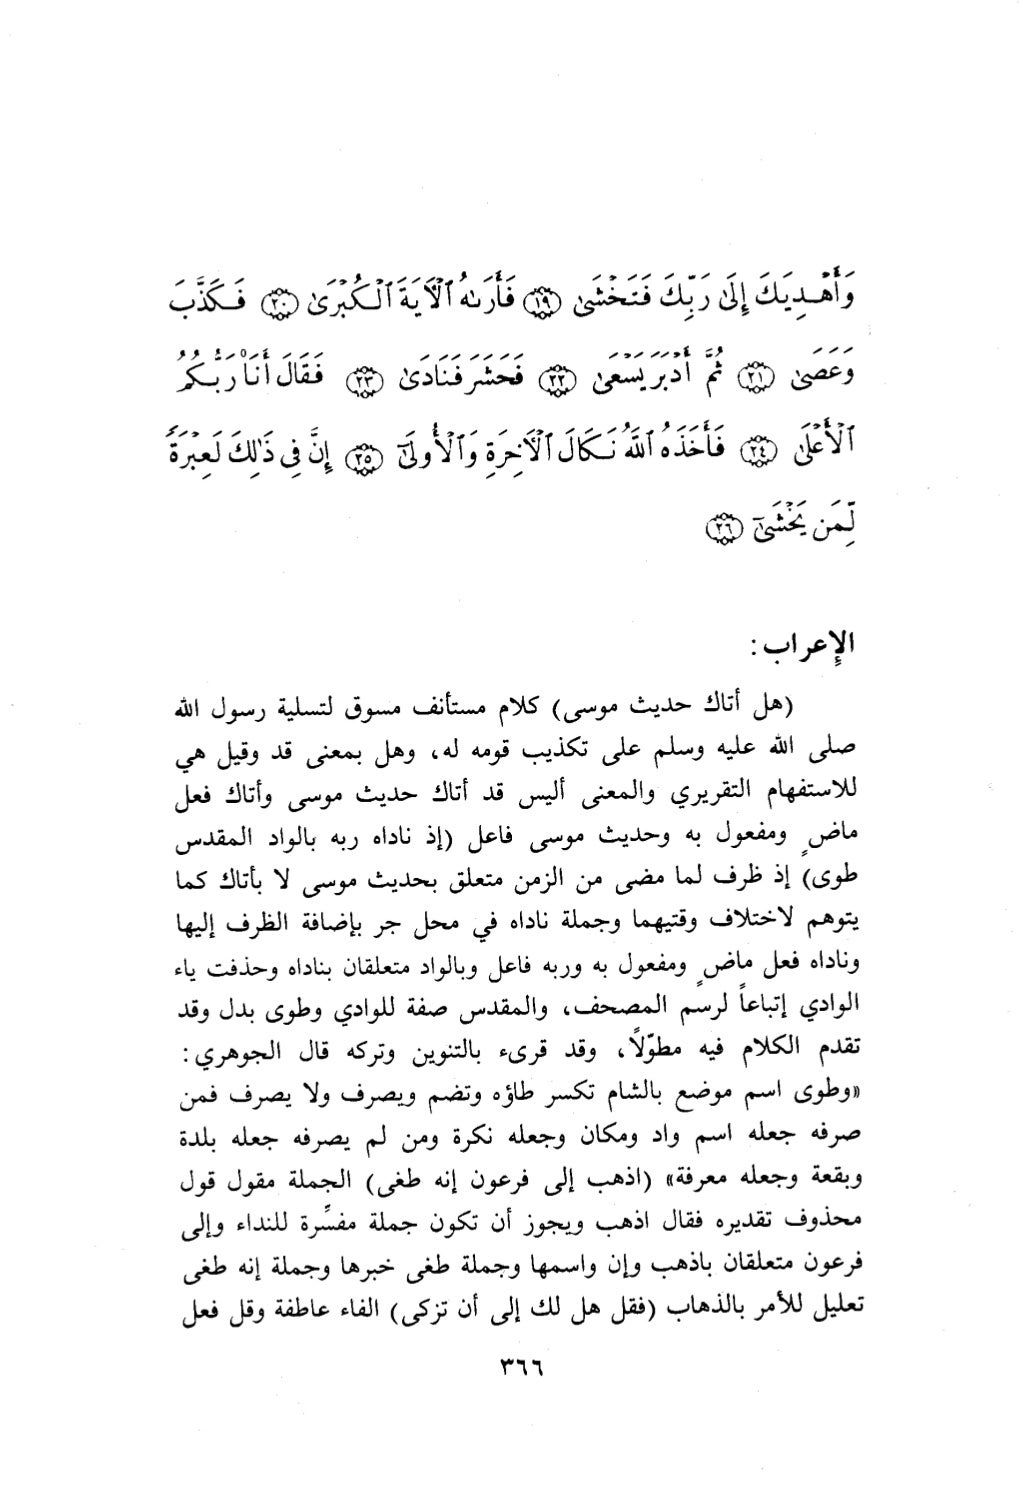 وَأَهْدِيَكَ إِلَىٰ رَبِّكَ فَتَخْشَىٰ ﴿١٩﴾ فَأَرَىٰهُ ٱلْآيَةَ ٱلْكُبْرَىٰ ﴿٢٠﴾ فَكَذَّبَ
وَعَصَىٰ ﴿٢١﴾ ثُمَّ أَدْبَرَ يَسْعَىٰ ﴿٢٢﴾ فَحَشَرَ فَنَادَىٰ ﴿٢٣﴾ فَقَالَ أَنَا۠ رَبُّكُمُ
ٱلْأَعْلَىٰ ﴿٢٤﴾ فَأَخَذَهُ ٱللَّهُ نَكَالَ ٱلْآخِرَةِ وَٱلْأُولَىٰٓ ﴿٢٥﴾ إِنَّ فِى ذَٰلِكَ لَعِبْرَةً
لِّمَن يَخْشَىٰٓ ﴿٢٦﴾
الإعراب :
(هل أتاك حديث موسى) كلام مستأنف مسوق لتسلية رسول الله
صلى الله عليه وسلم على تكذيب قومه له، وهل بمعنى قد وقيل هي
للاستفهام التقريري والمعنى أليس قد أتاك حديث موسى وأتاك فعل
ماضٍ ومفعول به وحديث موسى فاعل (إذ ناداه ربه بالواد المقدس
طوى) إذ ظرف لما مضى من الزمن متعلق بحديث موسى لا بأتاك كما
يتوهم لاختلاف وقتيهما وجملة ناداه في محل جر بإضافة الظرف إليها
وناداه فعل ماضٍ ومفعول به وربه فاعل وبالواد متعلقان بناداه وحذفت ياء
الوادي إتباعاً لرسم المصحف، والمقدس صفة للوادي وطوى بدل وقد
تقدم الكلام فيه مطوّلًا، وقد قرىء بالتنوين وتركه قال الجوهري :
«وطوى اسم موضع بالشام تكسر طاؤه وتضم ويصرف ولا يصرف فمن
صرفه جعله اسم واد ومكان وجعله نكرة ومن لم يصرفه جعله بلدة
وبقعة وجعله معرفة» (اذهب إلى فرعون إنه طغى) الجملة مقول قول
محذوف تقديره فقال اذهب ويجوز أن تكون جملة مفسِّرة للنداء وإلى
فرعون متعلقان باذهب وإن واسمها وجملة طغى خبرها وجملة إنه طغى
تعليل للأمر بالذهاب (فقل هل لك إلى أن تزكى) الفاء عاطفة وقل فعل
٣٦٦